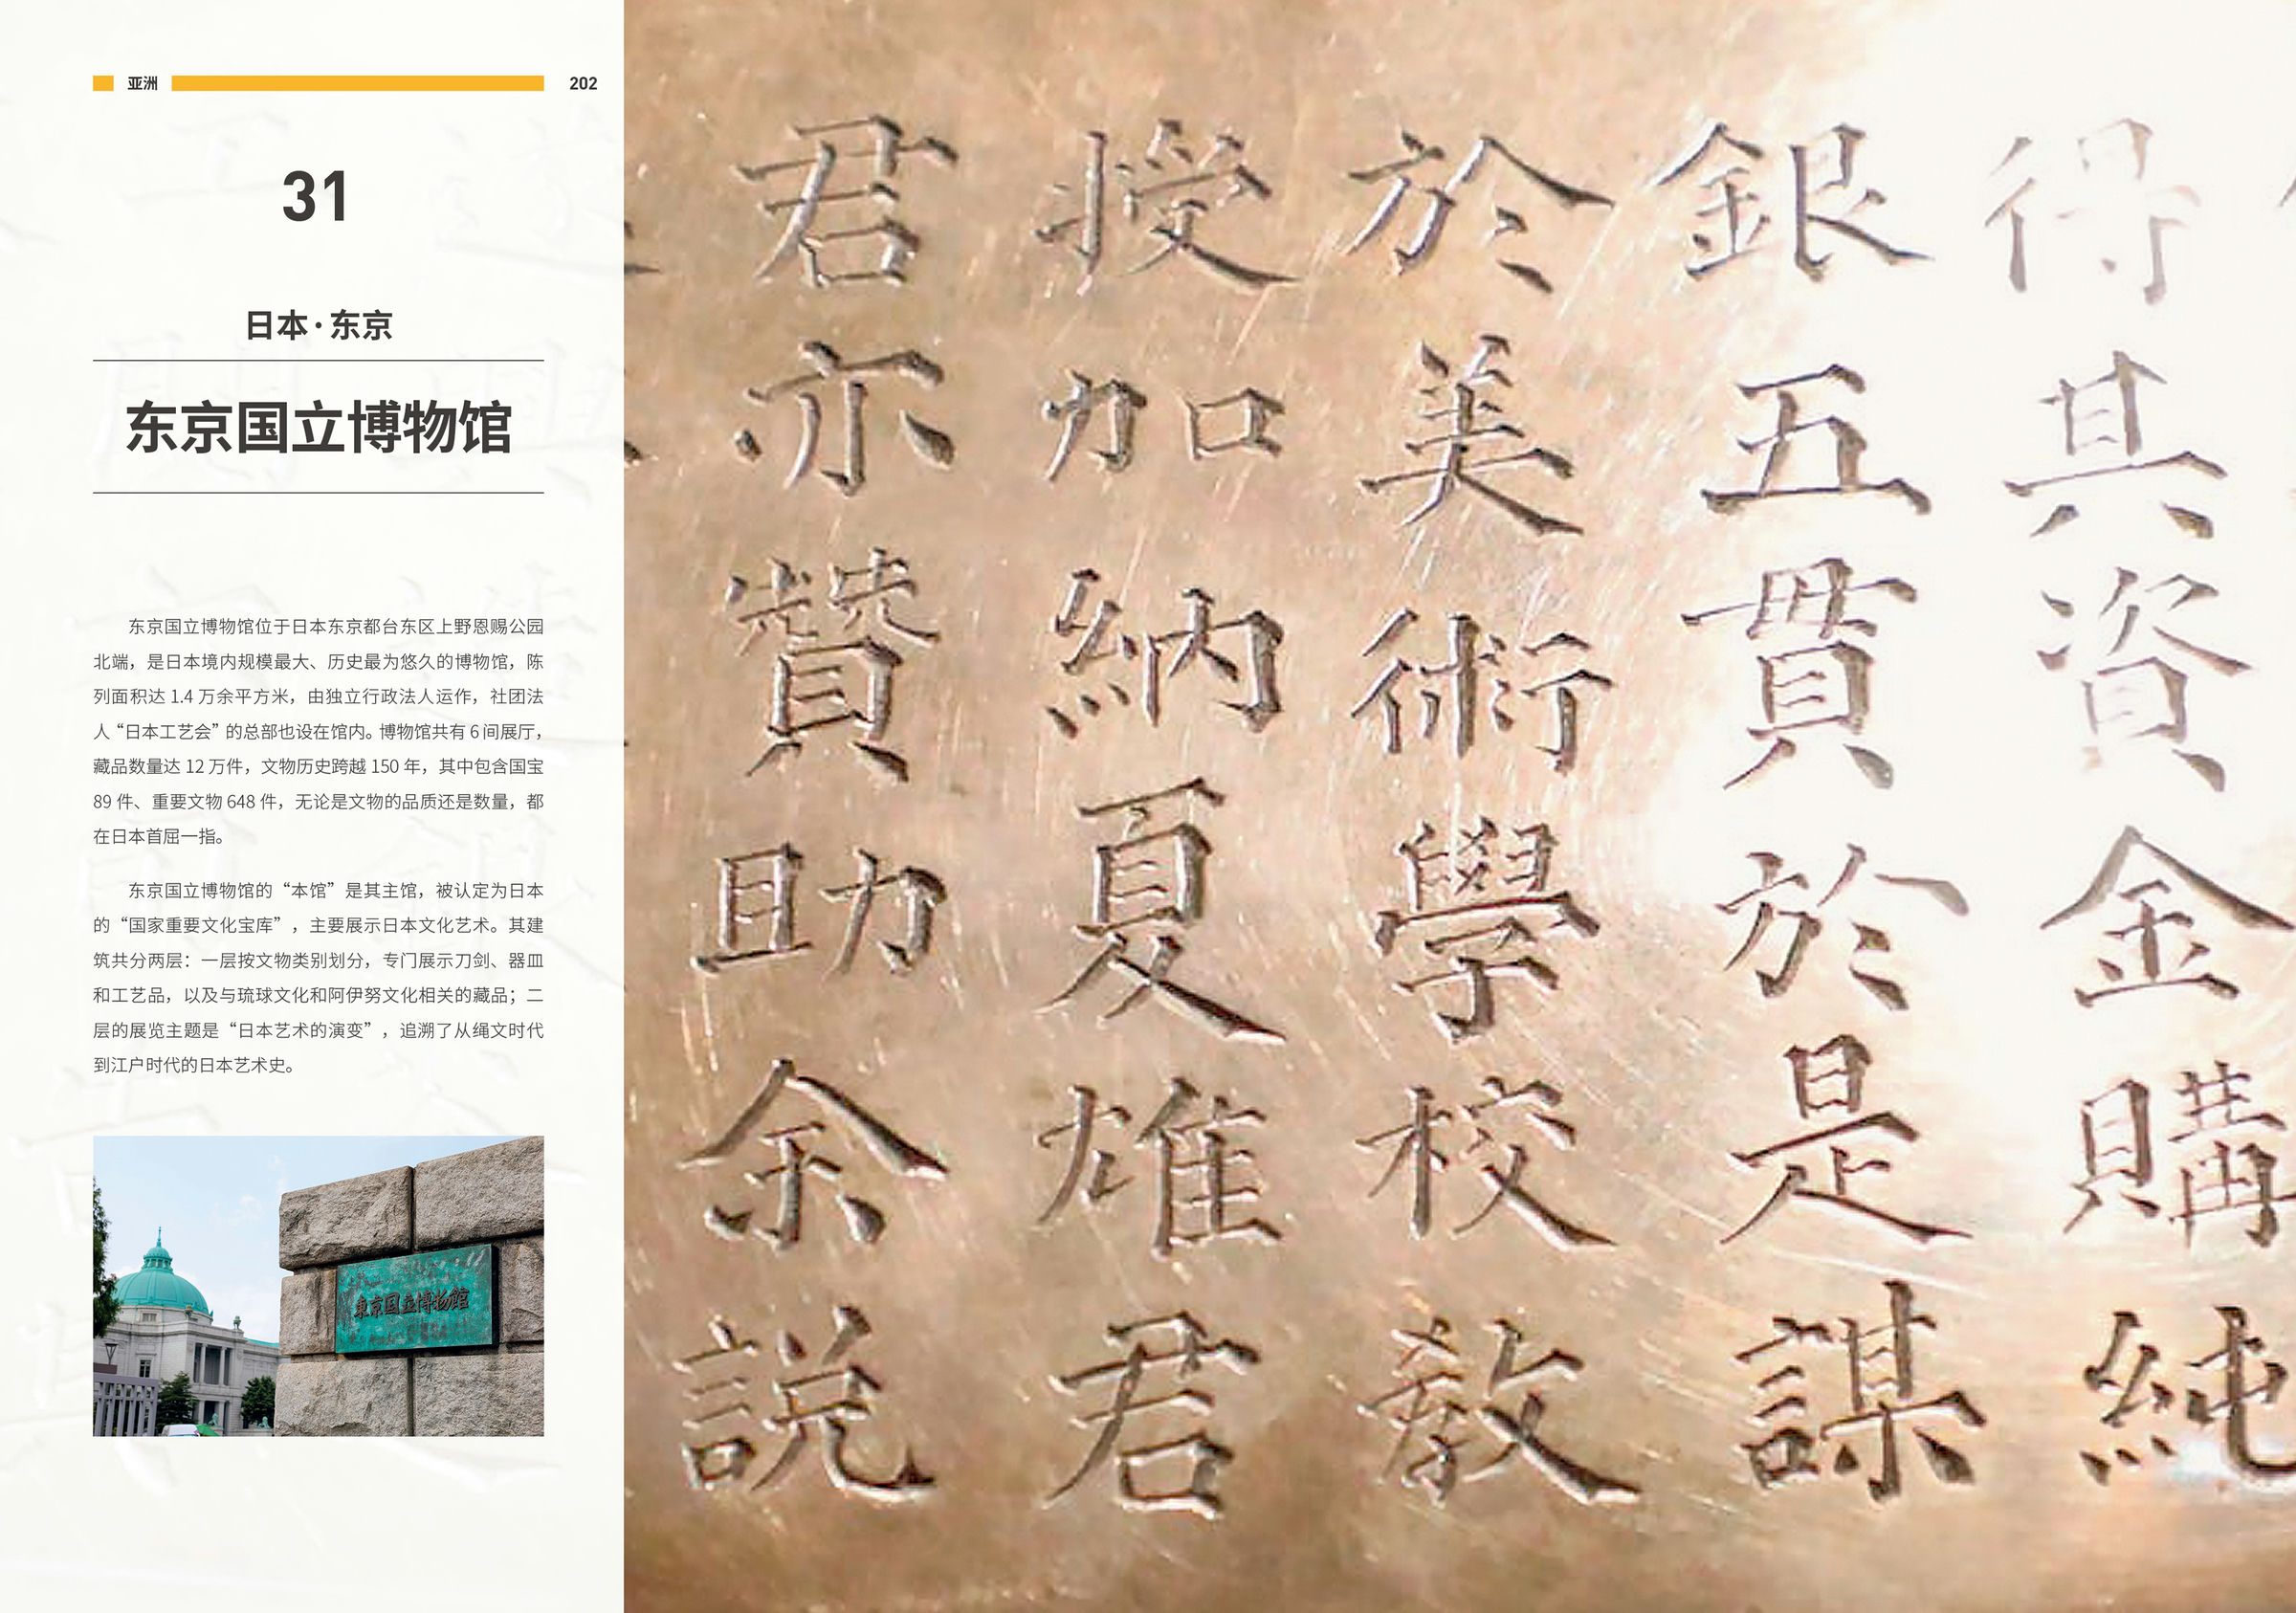 亚洲
202
31
日本·东京
东京国立博物馆
东京国立博物馆位于日本东京都台东区上野恩赐公园
北端，是日本境内规模最大、历史最为悠久的博物馆，陈
列面积达 1.4 万余平方米，由独立行政法人运作，社团法
人“日本工艺会”的总部也设在馆内。博物馆共有 6 间展厅，
藏品数量达 12 万件，文物历史跨越 150 年，其中包含国宝
89 件、重要文物 648 件，无论是文物的品质还是数量，都
在日本首屈一指。
东京国立博物馆的“本馆”是其主馆，被认定为日本
的“国家重要文化宝库”，主要展示日本文化艺术。其建
筑共分两层：一层按文物类别划分，专门展示刀剑、器皿
和工艺品，以及与琉球文化和阿伊努文化相关的藏品；二
层的展览主题是“日本艺术的演变”，追溯了从绳文时代
到江户时代的日本艺术史。
東京国立博物館
得其資金購純
銀五貫於是謀
於美術學校教
授加納夏雄君
君亦贊助余説